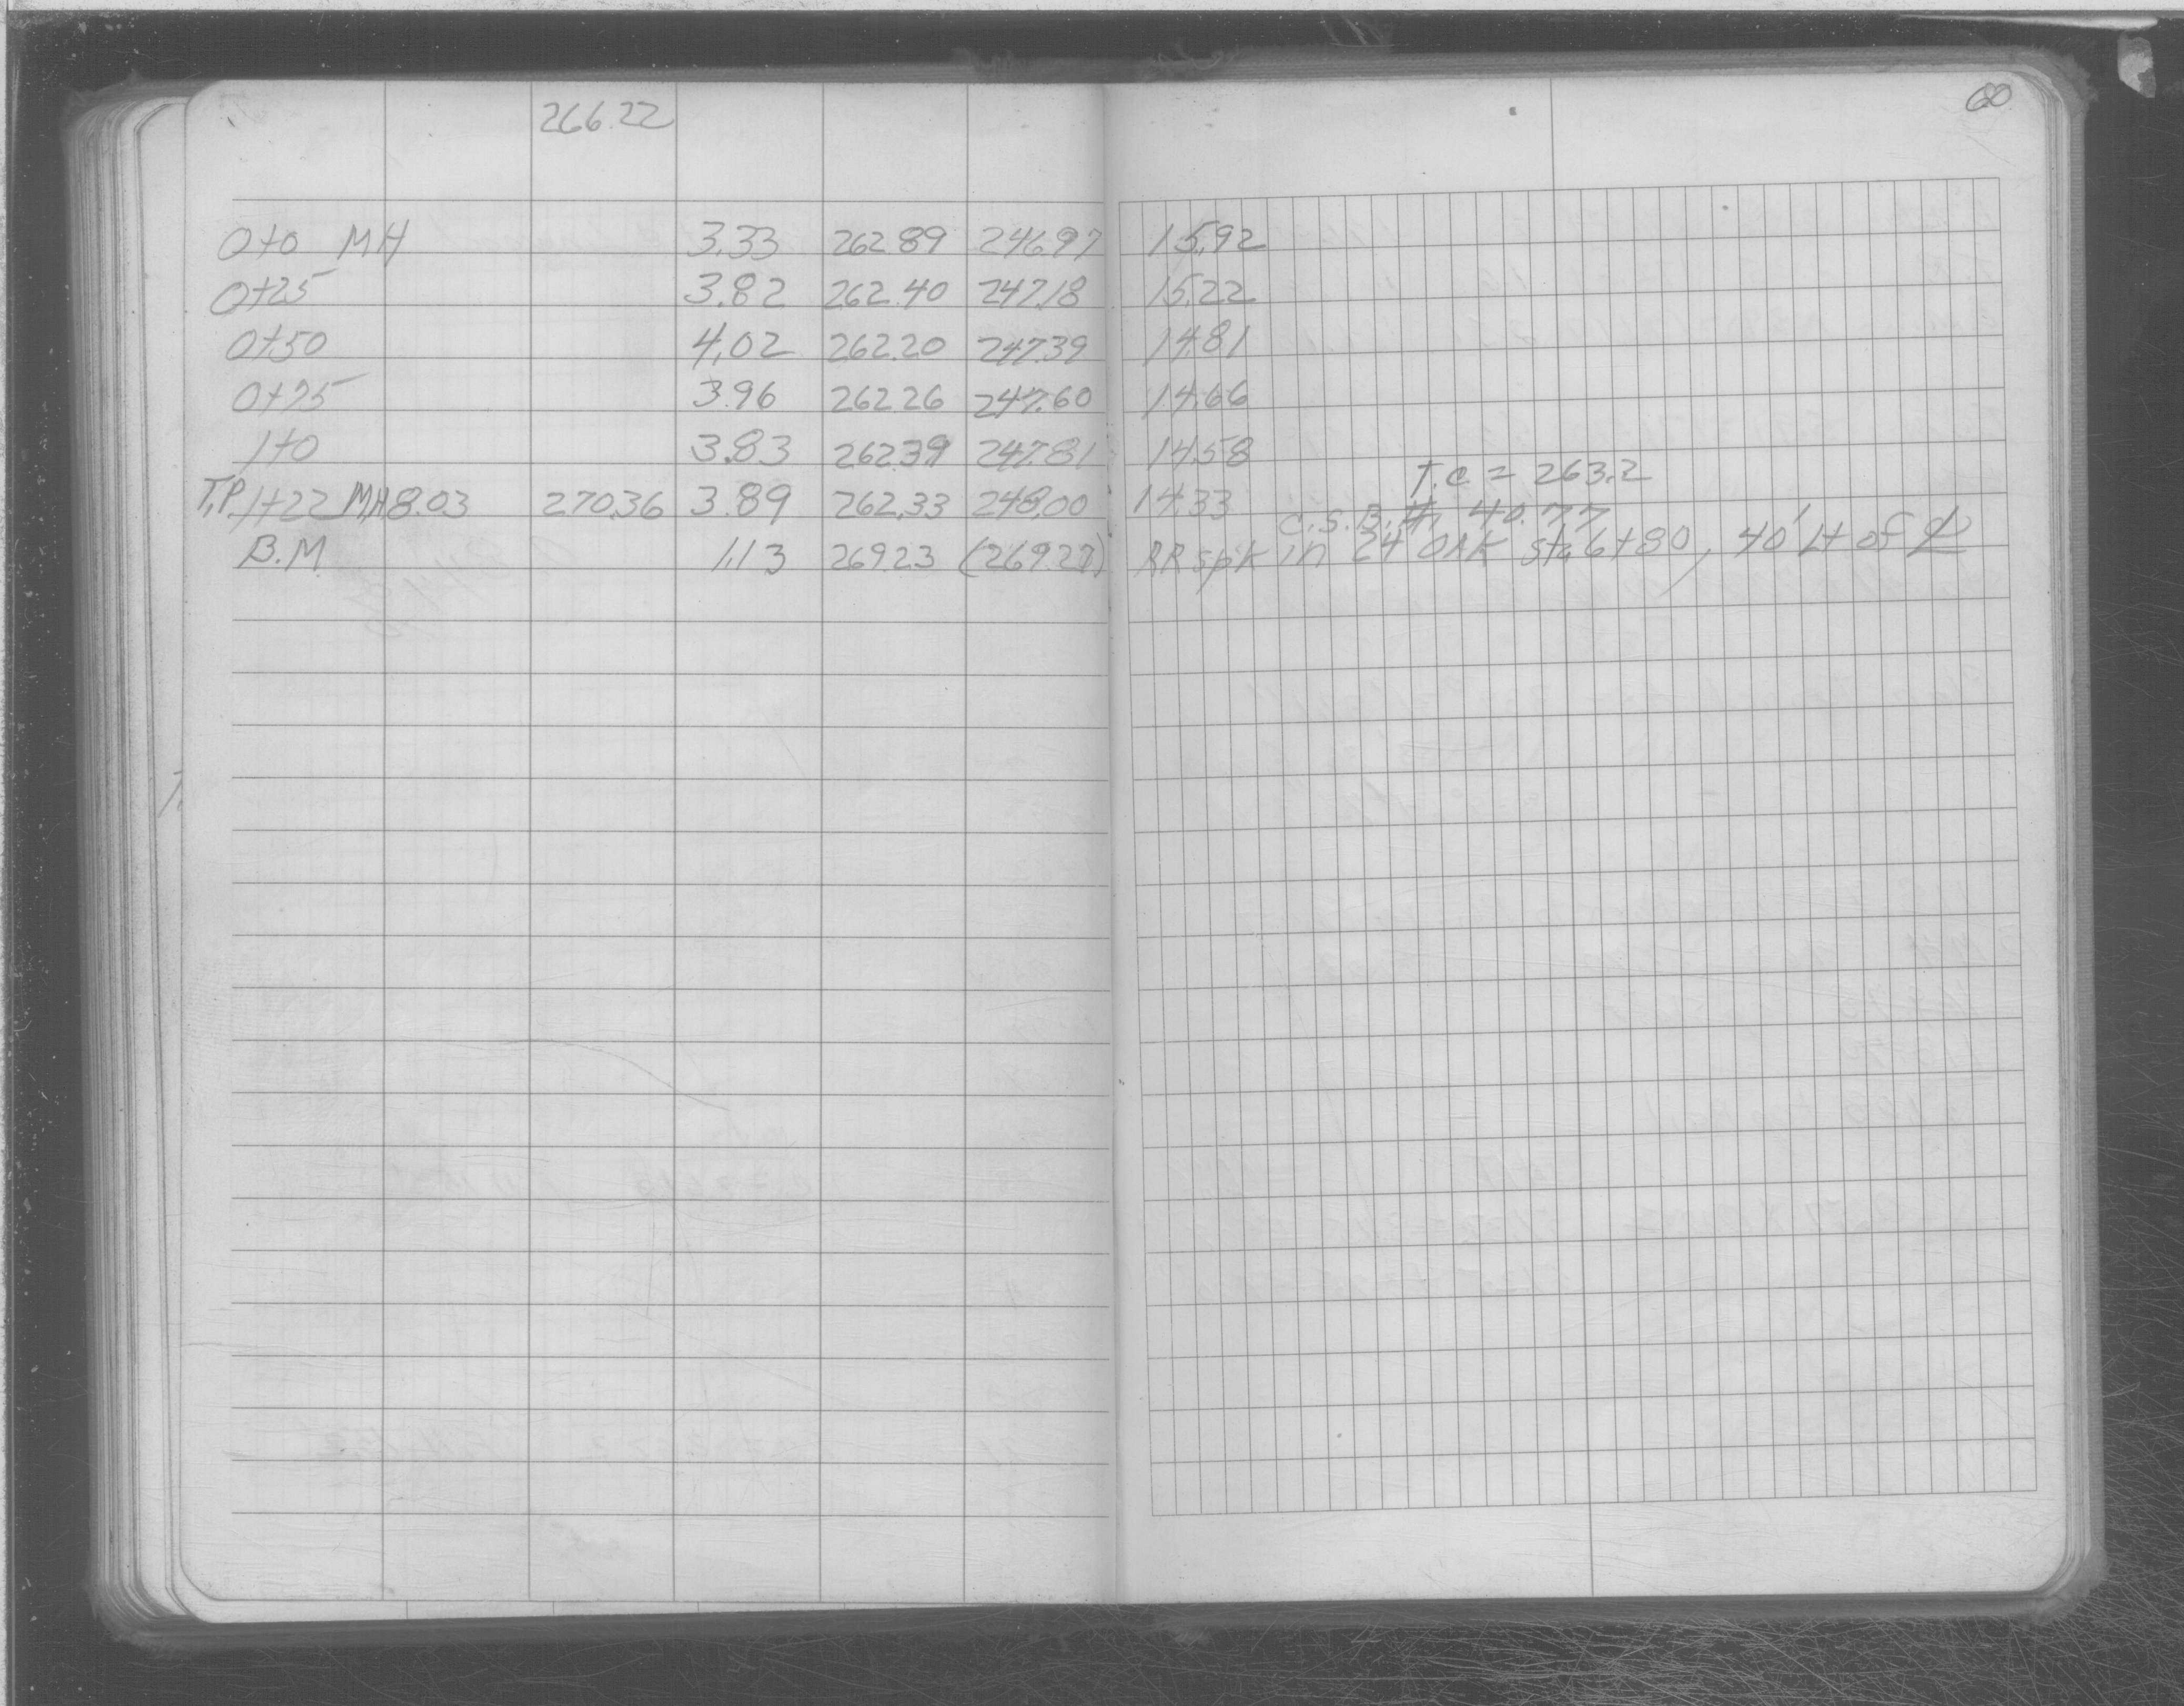 60
266.22
0+0 MH 3.33 262.89 246.97 15.92
0+25 3.82 262.40 247.18 15.22
0+50 4.02 262.20 247.39 14.81
0+75 3.96 262.26 247.60 14.66
1+0 3.83 262.39 247.81 14.58
T.C. = 263.2
T.P. 1+22 MH 8.03 270.36 3.89 262.33 248.00 14.33
C.S.B.#. 40.77
B.M. 1.13 269.23 (269.27) RR spk in 24 OAK Sta 6+80, 40' Lt of ℄